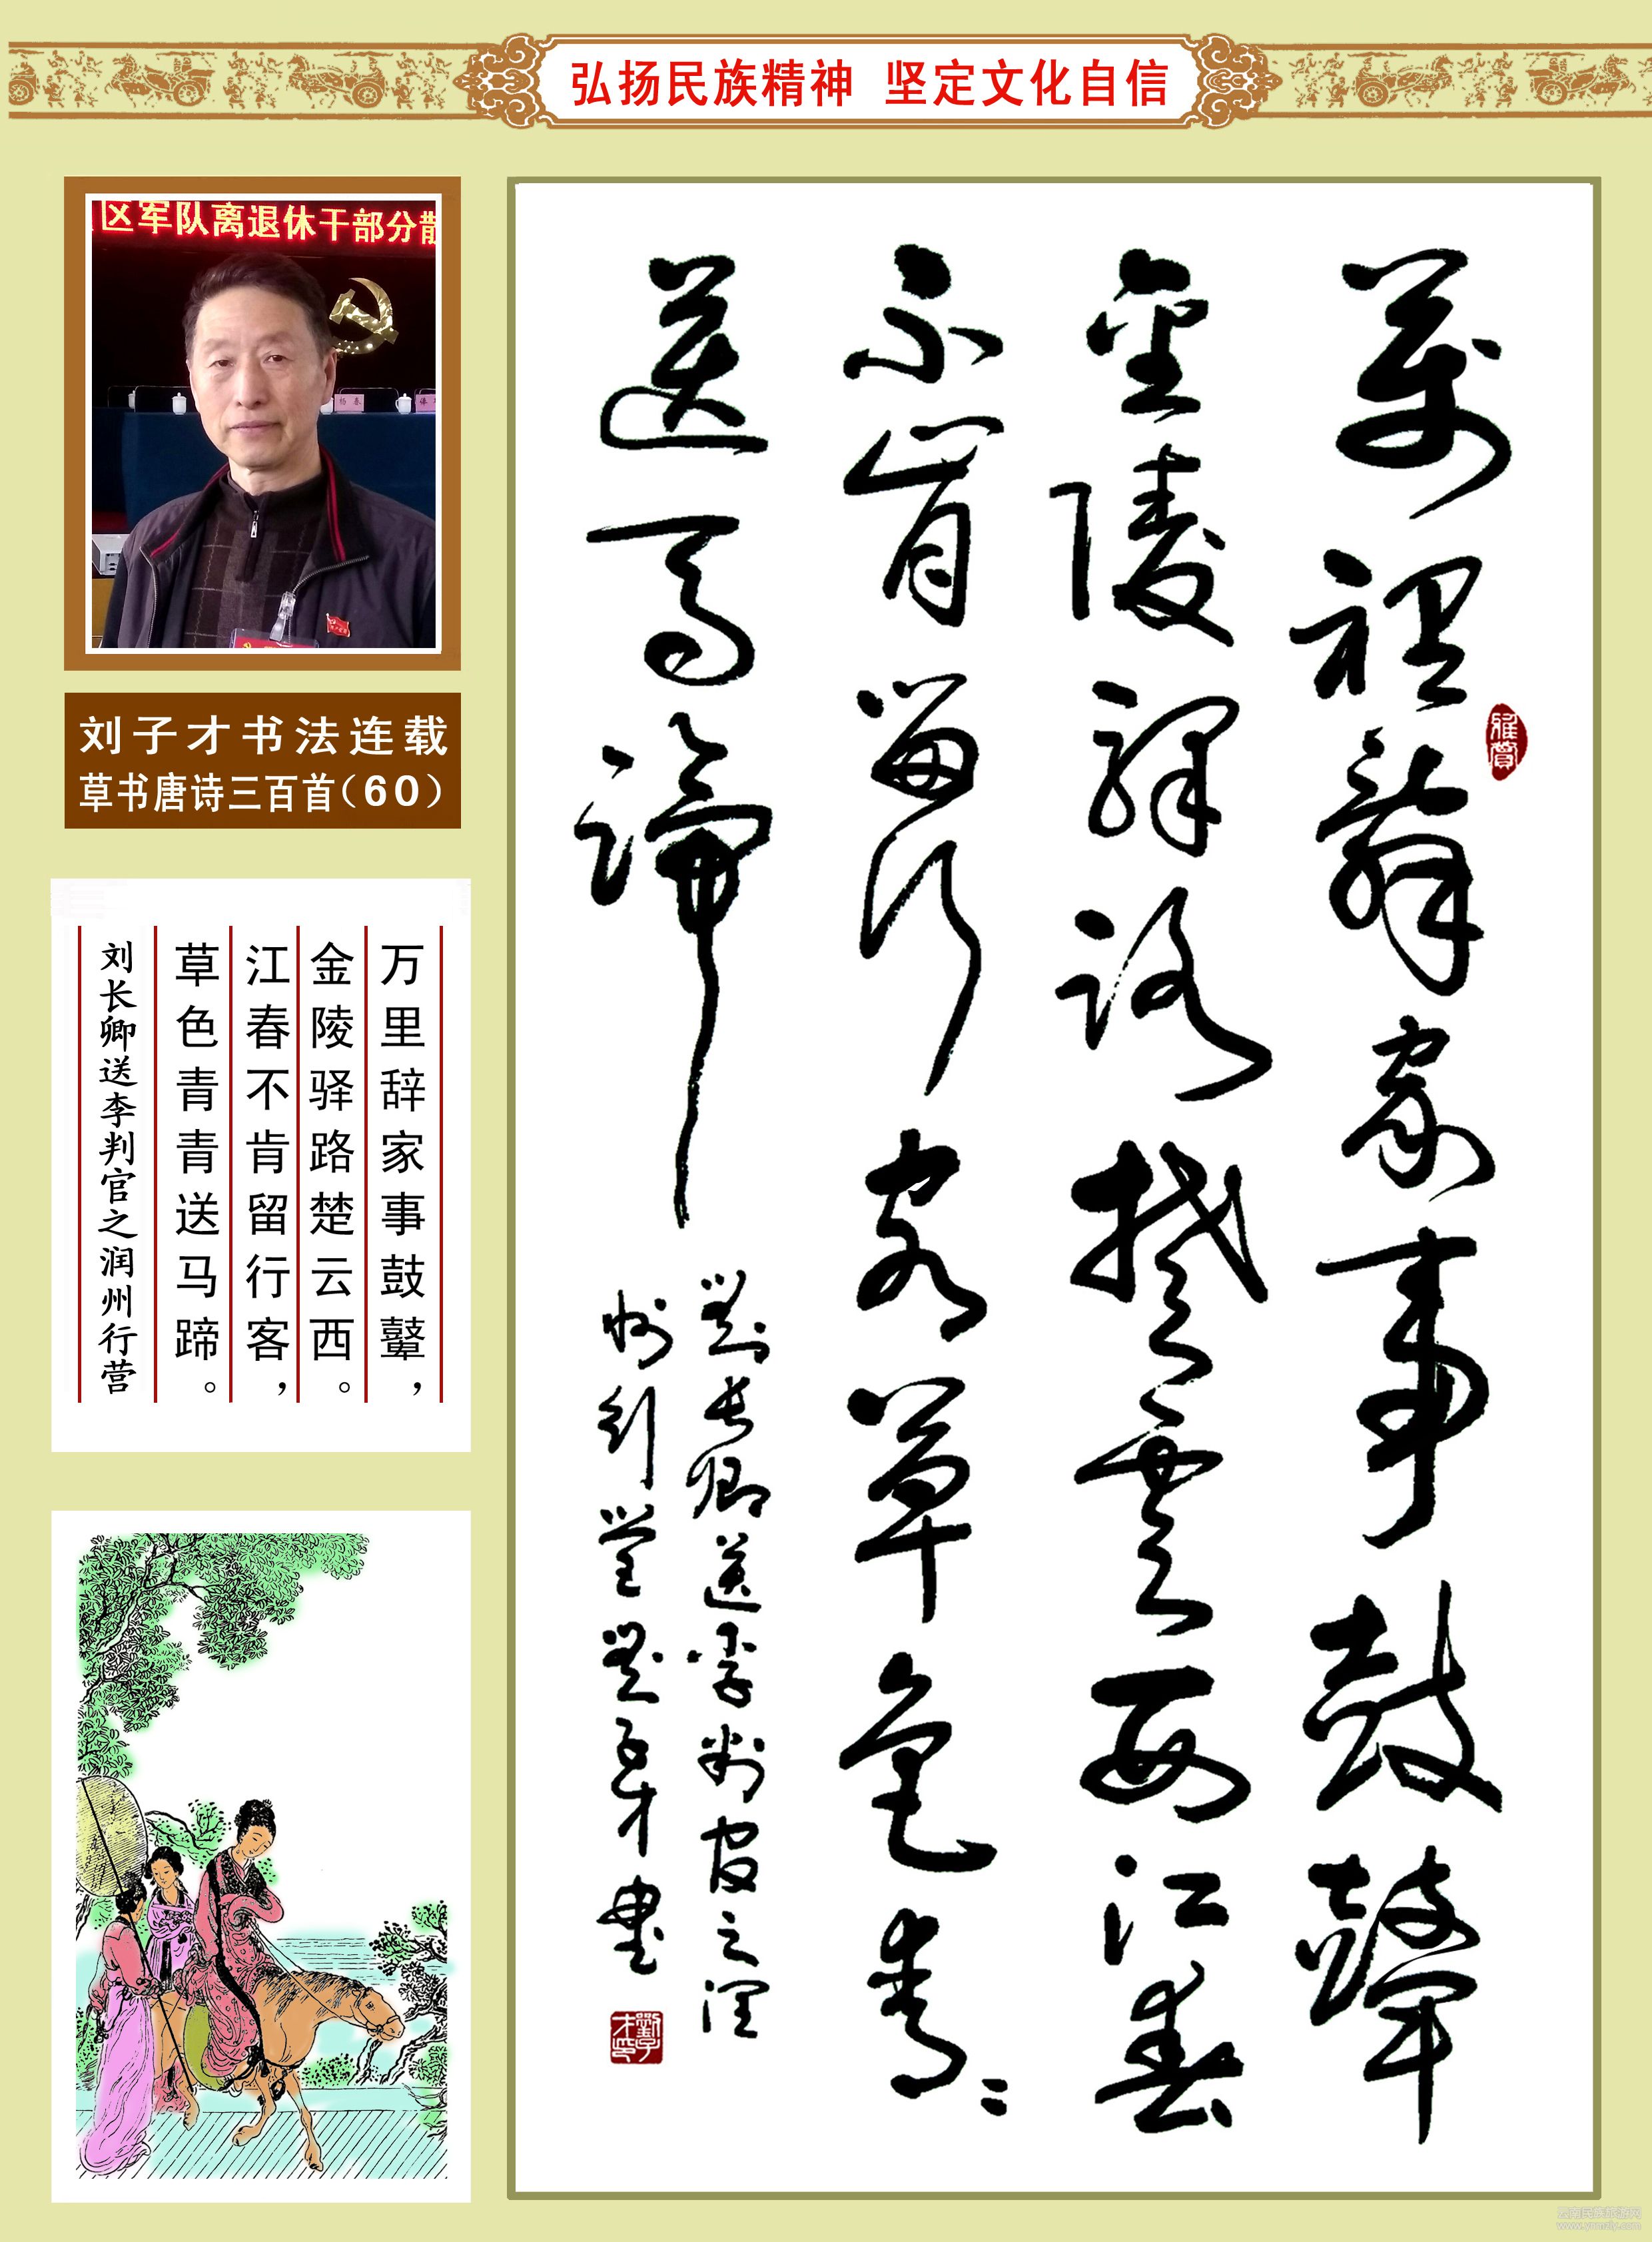 弘扬民族精神 坚定文化自信
区军队离退休干部分散
杨春
刘子才书法连载
草书唐诗三百首（60）
万里辞家事鼓鼙，
金陵驿路楚云西。
江春不肯留行客，
草色青青送马蹄。
刘长卿送李判官之润州行营
萬裡辭家事鼓鼙
金陵驛路楚雲西江春
不肯留行客草色青〻
送马蹄
劉长卿送李判官之润
州行營劉子才书
雅賞
劉子才印